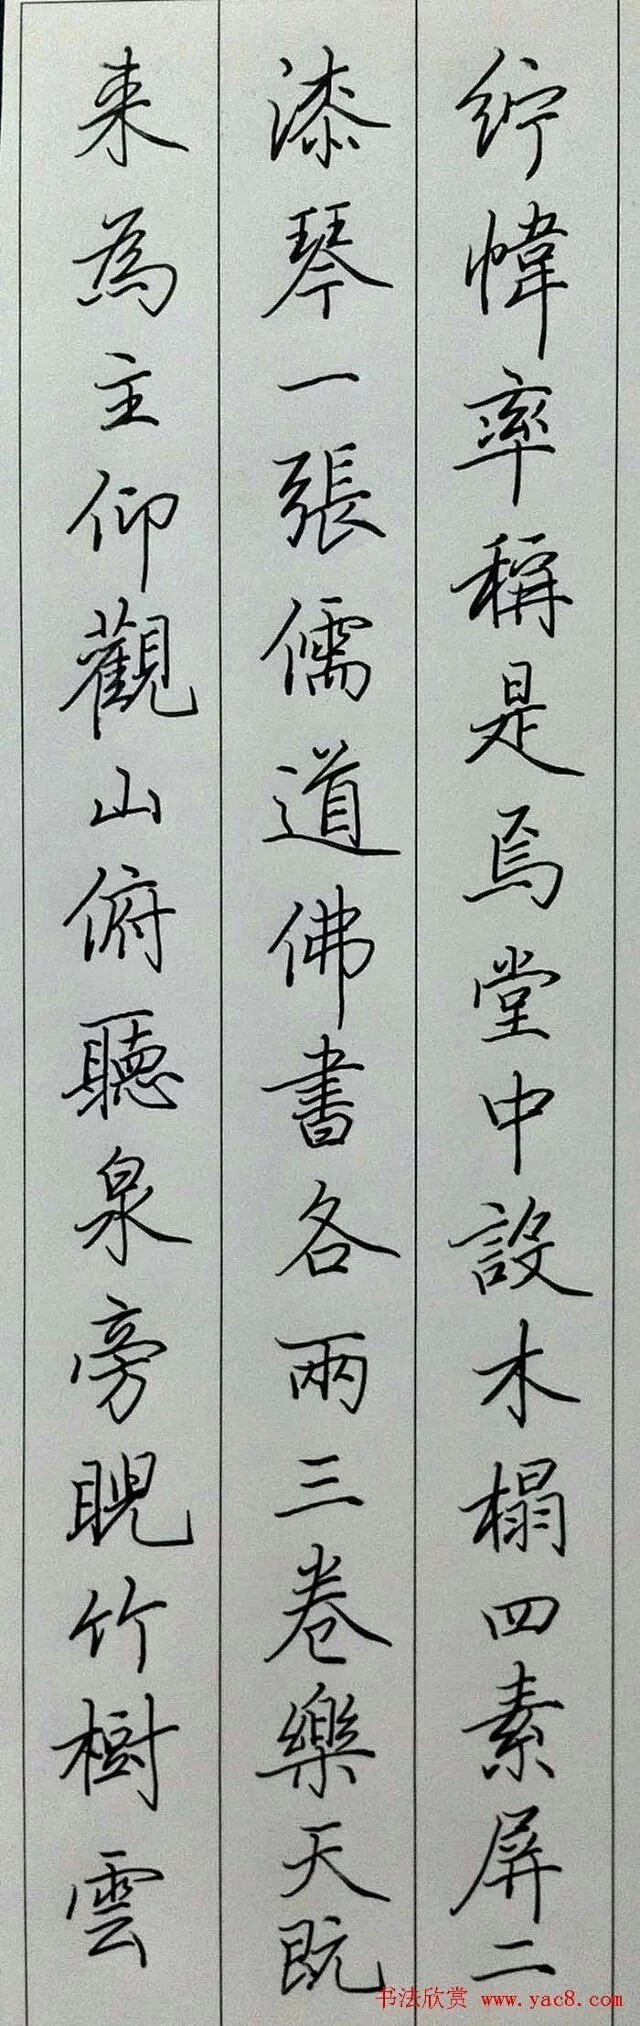 紵幃率稱是焉堂中設木榻四素屏二
漆琴一張儒道佛書各兩三卷樂天既
来為主仰觀山俯聽泉旁睨竹樹雲
书法欣赏 www.yac8.com